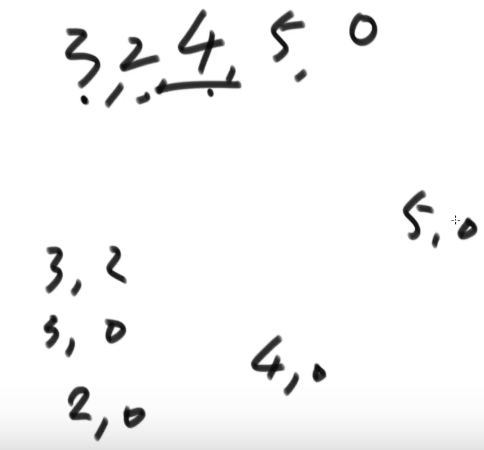 3, 2 4, 5, 0
5, 0
3, 2
3, 0
4, 0
2, 0